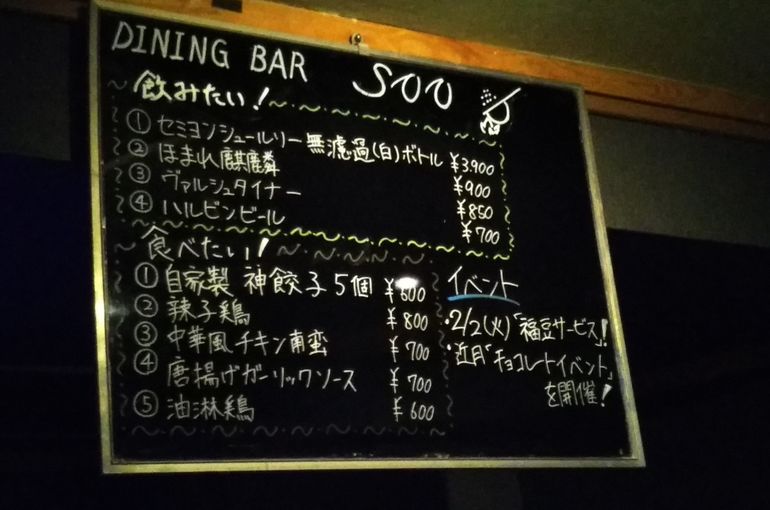 DINING BAR SOO
飲みたい!
① セミヨンシュールリー無濾過(白)ボトル ¥3.900
② ほまれ麒麟 ¥900
③ ヴァルシュタイナー ¥850
④ ハルビンビール ¥700
食べたい!
① 自家製 神餃子5個 ¥600
② 辣子鶏 ¥800
③ 中華風チキン南蛮 ¥700
④ 唐揚げガーリックソース ¥700
⑤ 油淋鶏 ¥600
イベント
・2/2(火)「福豆サービス」!
・近月「チョコレートイベント」
を開催!